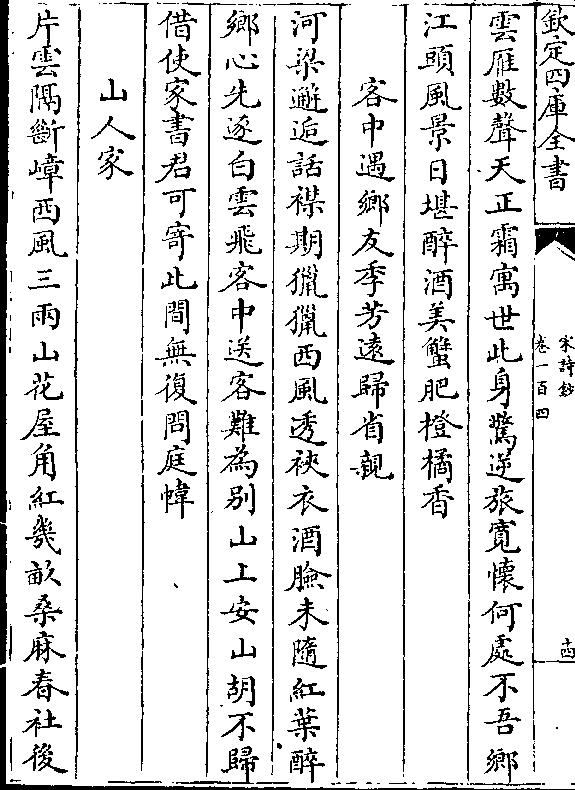 欽定四庫全書
宋詩鈔
卷一百四
十四
雲雁數聲天正霜寓世此身驚逆旅寛懷何處不吾鄉
江頭風景日堪醉酒美蟹肥橙橘香
客中遇鄉友季芳遠歸省親
河梁邂逅話襟期獵獵西風透裌衣酒臉未隨紅葉醉
鄉心先逐白雲飛客中送客難為別山上安山胡不歸
借使家書君可寄此間無復問庭幃
山人家
片雲隅斷嶂西風三兩山花屋角紅幾畝桑麻春社後